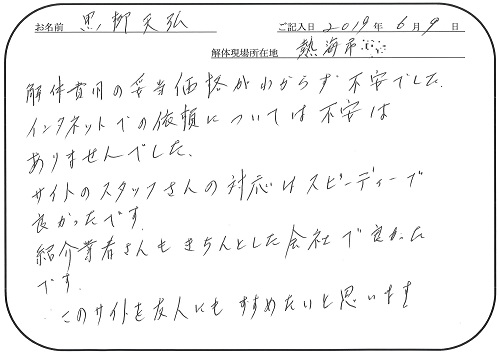 お名前 黒柳天弘 ご記入日 2019年 6月 9日
解体現場所在地 熱海市
解体費用の妥当価格がわからず不安でした。
インタネットでの依頼については不安は
ありませんでした。
サイトのスタッフさんの対応はスピーディーで
良かったです。
紹介業者さんもきちんとした会社で良かった
です。
このサイトを友人にもすすめたいと思います